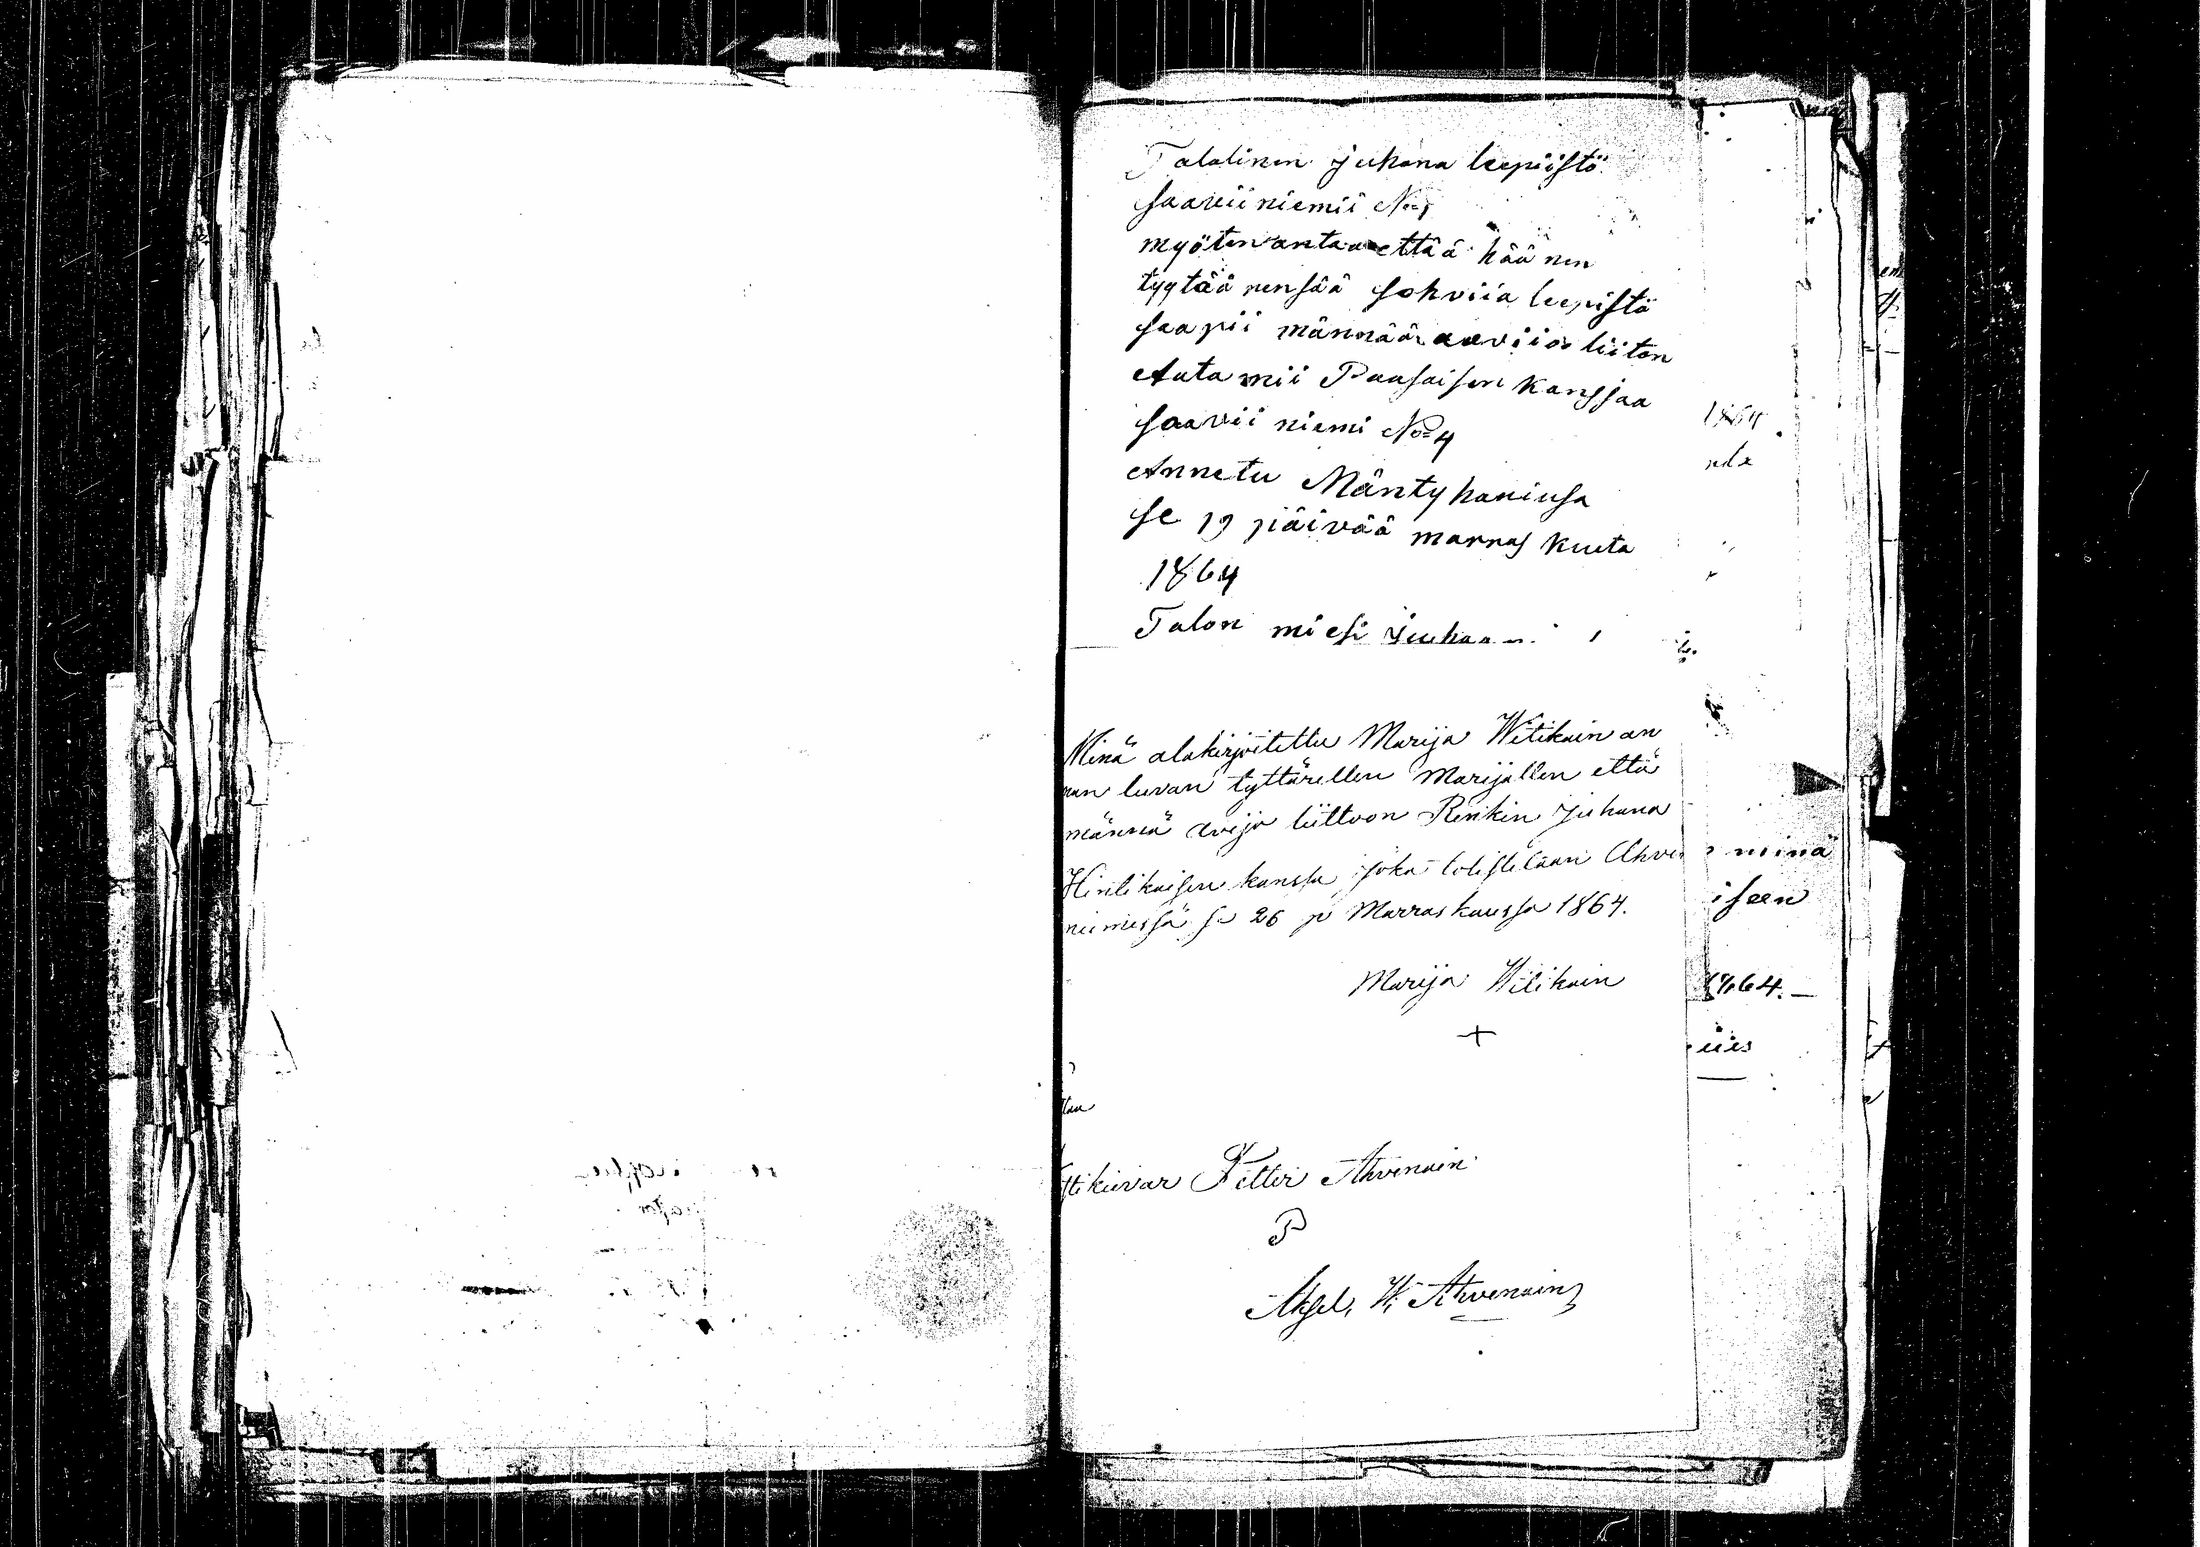 Talolinen juhana leepiistö
saarii niemii No 1
myöten antaa että häänen
tyytäärensää sohviia leepistö
saapii männään aaviio liiton
Aatamii Paasaisen kansjaa
saarii niemi No 4
Annetu Mäntyhariusa
se 19 päivää marras kuuta
1864
Talon miesi juuhaa
Minä alakirjoitettu Marija Witikain an
nan luvan tyttärellen Marijallen että
männä avijo liittoon Renkin Juhana
Hintikaisen kanssa joka totistetaan Ahve
niemessä se 26 p Marraskuussa 1864.
Marija Witikain
+
Petter Ahvenain
P
Aksel, W. Ahvenain
1864
minä
iseen
1864.